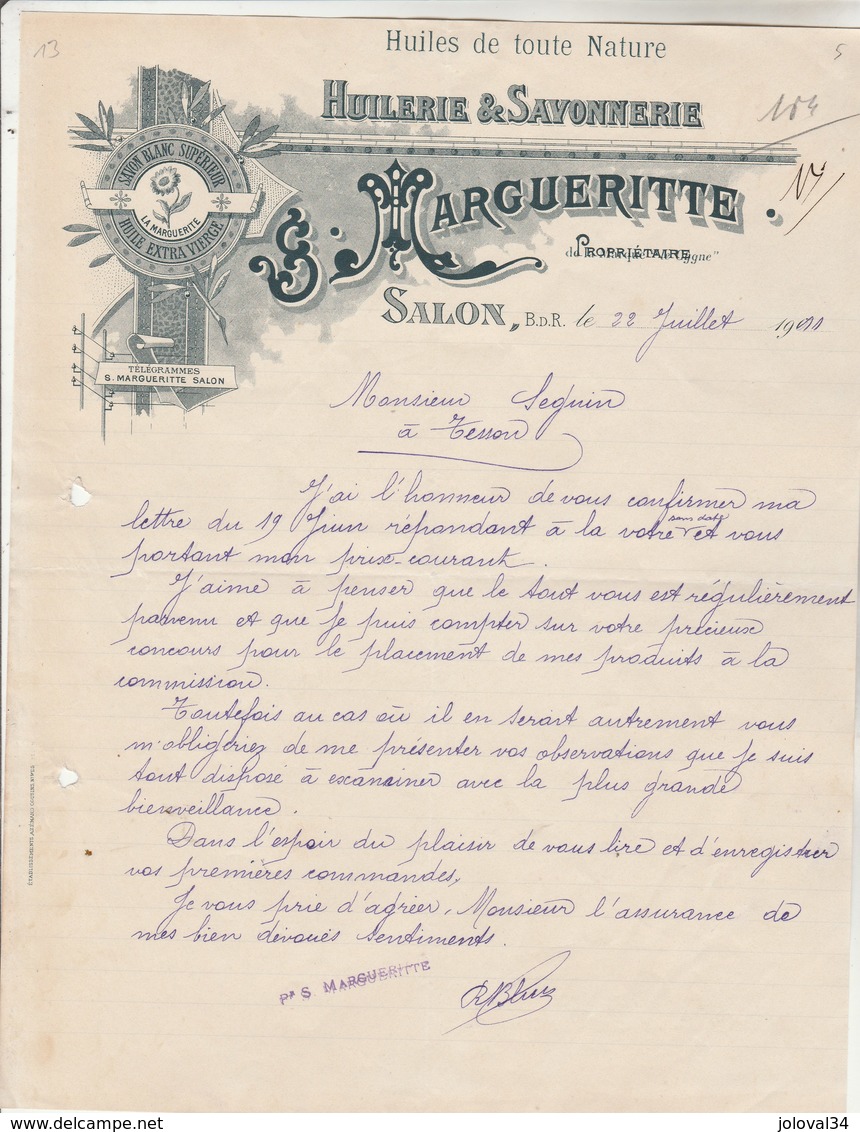 13
5
Huiles de toute Nature
HUILERIE & SAVONNERIE
104
SAVON BLANC SUPÉRIEUR
LA MARGUERITE
HUILE EXTRA VIERGE
S. MARGUERITTE.
PROPRIÉTAIRE
SALON, B.D.R. le 22 Juillet 1911
TÉLÉGRAMMES
S. MARGUERITTE SALON
Monsieur Seguin
à Tesson
J'ai l'honneur de vous confirmer ma
lettre du 19 Juin répondant à la votre sans date et vous
portant mon prix-courant.
J'aime à penser que le tout vous est régulièrement
parvenu et que je puis compter sur votre précieux
concours pour le placement de mes produits à la
commission.
Toutefois au cas où il en serait autrement vous
m'obligeriez de me présenter vos observations que je suis
tout disposé à examiner avec la plus grande
bienveillance.
Dans l'espoir du plaisir de vous lire et d'enregistrer
vos premières commandes,
Je vous prie d'agréer, Monsieur l'assurance de
mes bien dévoués sentiments.
Pr S. MARGUERITTE
delcampe.net
joloval34